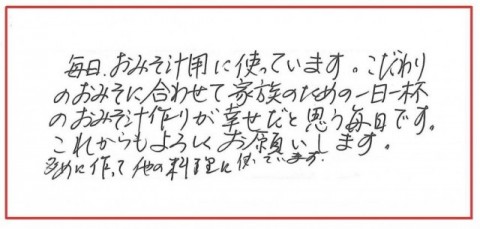 毎日、おみそ汁用に使っています。こだわり
のおみそに合わせて家族のための一日一杯
のおみそ汁作りが幸せだと思う毎日です。
これからもよろしくお願いします。
多めに作って他の料理に使っています。